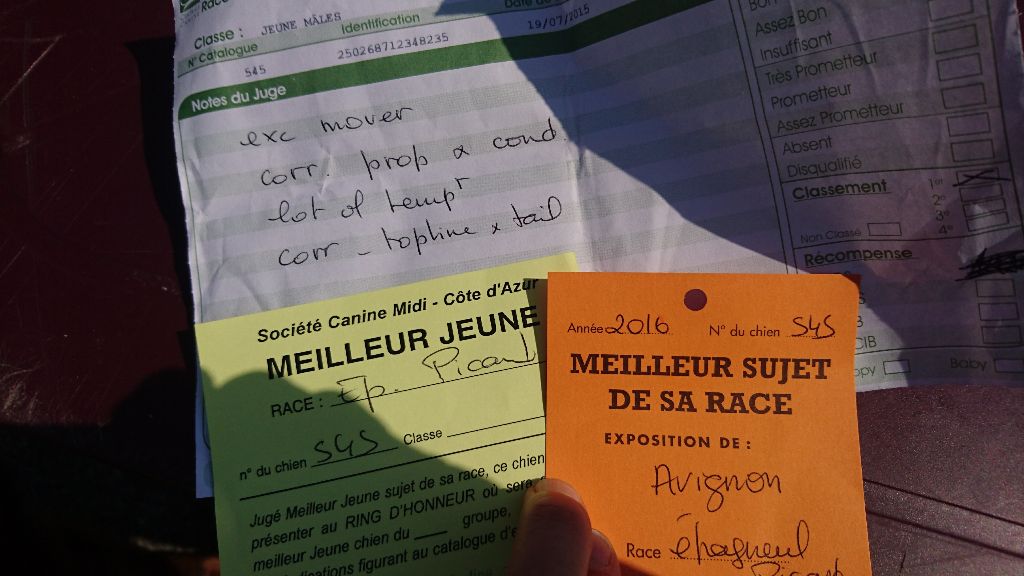 Race
Classe : JEUNE MÂLES
N° Catalogue Identification Date de
545 250268712348235 19/07/2015
Notes du Juge
exc mover
corr. prop & cond.
lot of tempr
corr - topline & tail
Bon
Assez Bon
Insuffisant
Très Prometteur
Prometteur
Assez Prometteur
Absent
Disqualifié
Classement 1er
2e
3e
4e
Non Classé
Récompense
CIB
Baby
Société Canine Midi - Côte d'Azur
MEILLEUR JEUNE
RACE : Ep. Picard
n° du chien 545 Classe
Jugé Meilleur Jeune sujet de sa race, ce chien
présenter au RING D'HONNEUR où sera
meilleur Jeune chien du ___ groupe,
figurant au catalogue d'e
Année 2016 N° du chien 545
MEILLEUR SUJET
DE SA RACE
EXPOSITION DE :
Avignon
Race épagneul
Picard